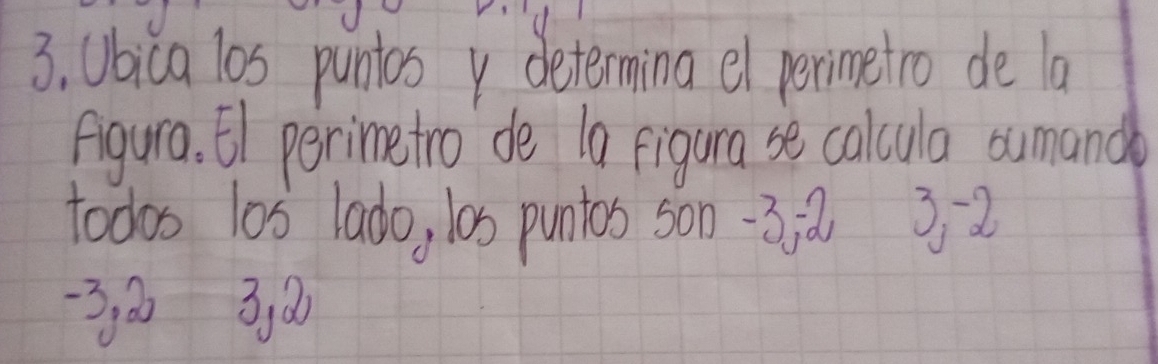 3. Ubica los puntos y determina el perimetro de la
figura. El perimetro de la figura se calcula sumando
todos los lado, los puntos son -3,-2 3,-2
-3,2 3,2